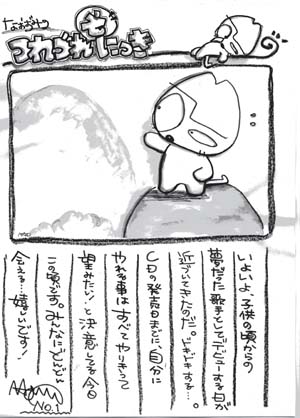 なおぼうの
つれづれ世にっき
いよいよ、子供の頃からの
夢だった歌手としてデビューする日が
近づいてきたのだ。ドキドキする…。
CDの発売日までに、自分に
やれる事はすべてやりきって
望みたい!と決意してる今日
この頃です。みんなにどんどん
会えて…嬉しいです!
No.1